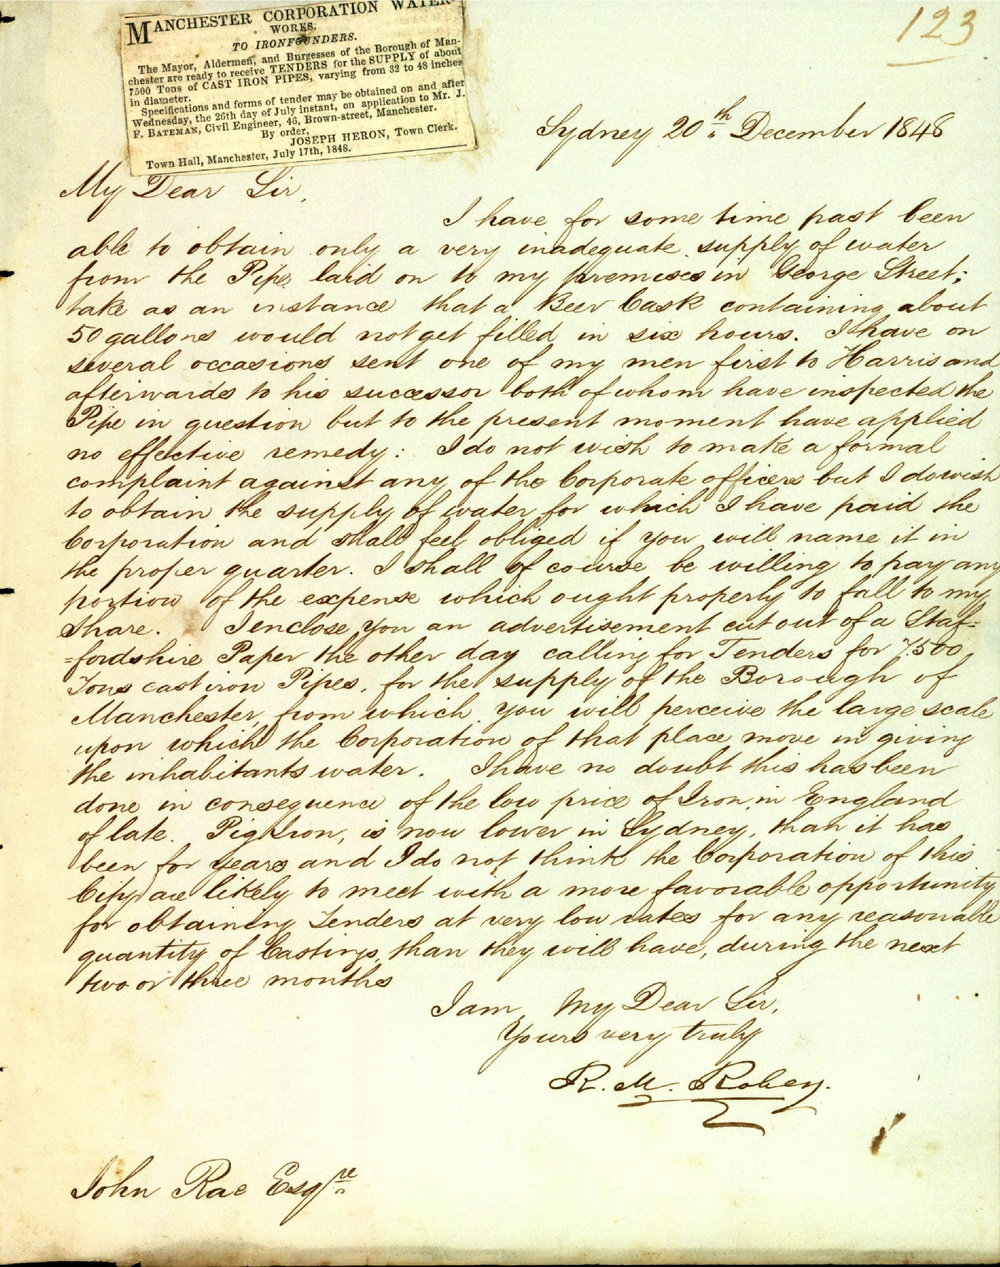 MANCHESTER CORPORATION WATER-
WORKS.
TO IRONFOUNDERS.
The Mayor, Aldermen, and Burgesses of the Borough of Man-
chester are ready to receive TENDERS for the SUPPLY of about
7500 Tons of CAST IRON PIPES, varying from 32 to 48 inches
in diameter.
Specifications and forms of tender may be obtained on and after
Wednesday, the 26th day of July instant, on application to Mr. J.
F. BATEMAN, Civil Engineer, 46, Brown-street, Manchester.
By order,
JOSEPH HERON, Town Clerk.
Town Hall, Manchester, July 17th, 1848.
123
Sydney 20th December 1848
My Dear Sir,
I have for some time past been
able to obtain only a very inadequate supply of water
from the Pipe laid on to my premises in George Street;
take as an instance that a Beer Cask containing about
50 gallons would not get filled in six hours. I have on
several occasions sent one of my men first to Harris and
afterwards to his successor both of whom have inspected the
Pipe in question but to the present moment have applied
no effective remedy: I do not wish to make a formal
complaint against any of the Corporate officers but I do wish
to obtain the supply of water for which I have paid the
Corporation and shall feel obliged if you will name it in
the proper quarter. I shall of course be willing to pay any
portion of the expense which ought properly to fall to my
share. I enclose you an advertisement cut out of a Staf=
=fordshire Paper the other day calling for Tenders for 7.500
Tons cast iron Pipes, for the supply of the Borough of
Manchester, from which you will perceive the large scale
upon which the Corporation of that place move in giving
the inhabitants water. I have no doubt this has been
done in consequence of the low price of Iron in England
of late. Pig Iron, is now lower in Sydney, than it has
been for years and I do not think the Corporation of this
City are likely to meet with a more favorable opportunity
for obtaining Tenders at very low rates for any reasonable
quantity of Castings, than they will have, during the next
two or three months
I am, My Dear Sir,
Yours very truly
R. M. Robey.
John Rae Esqre